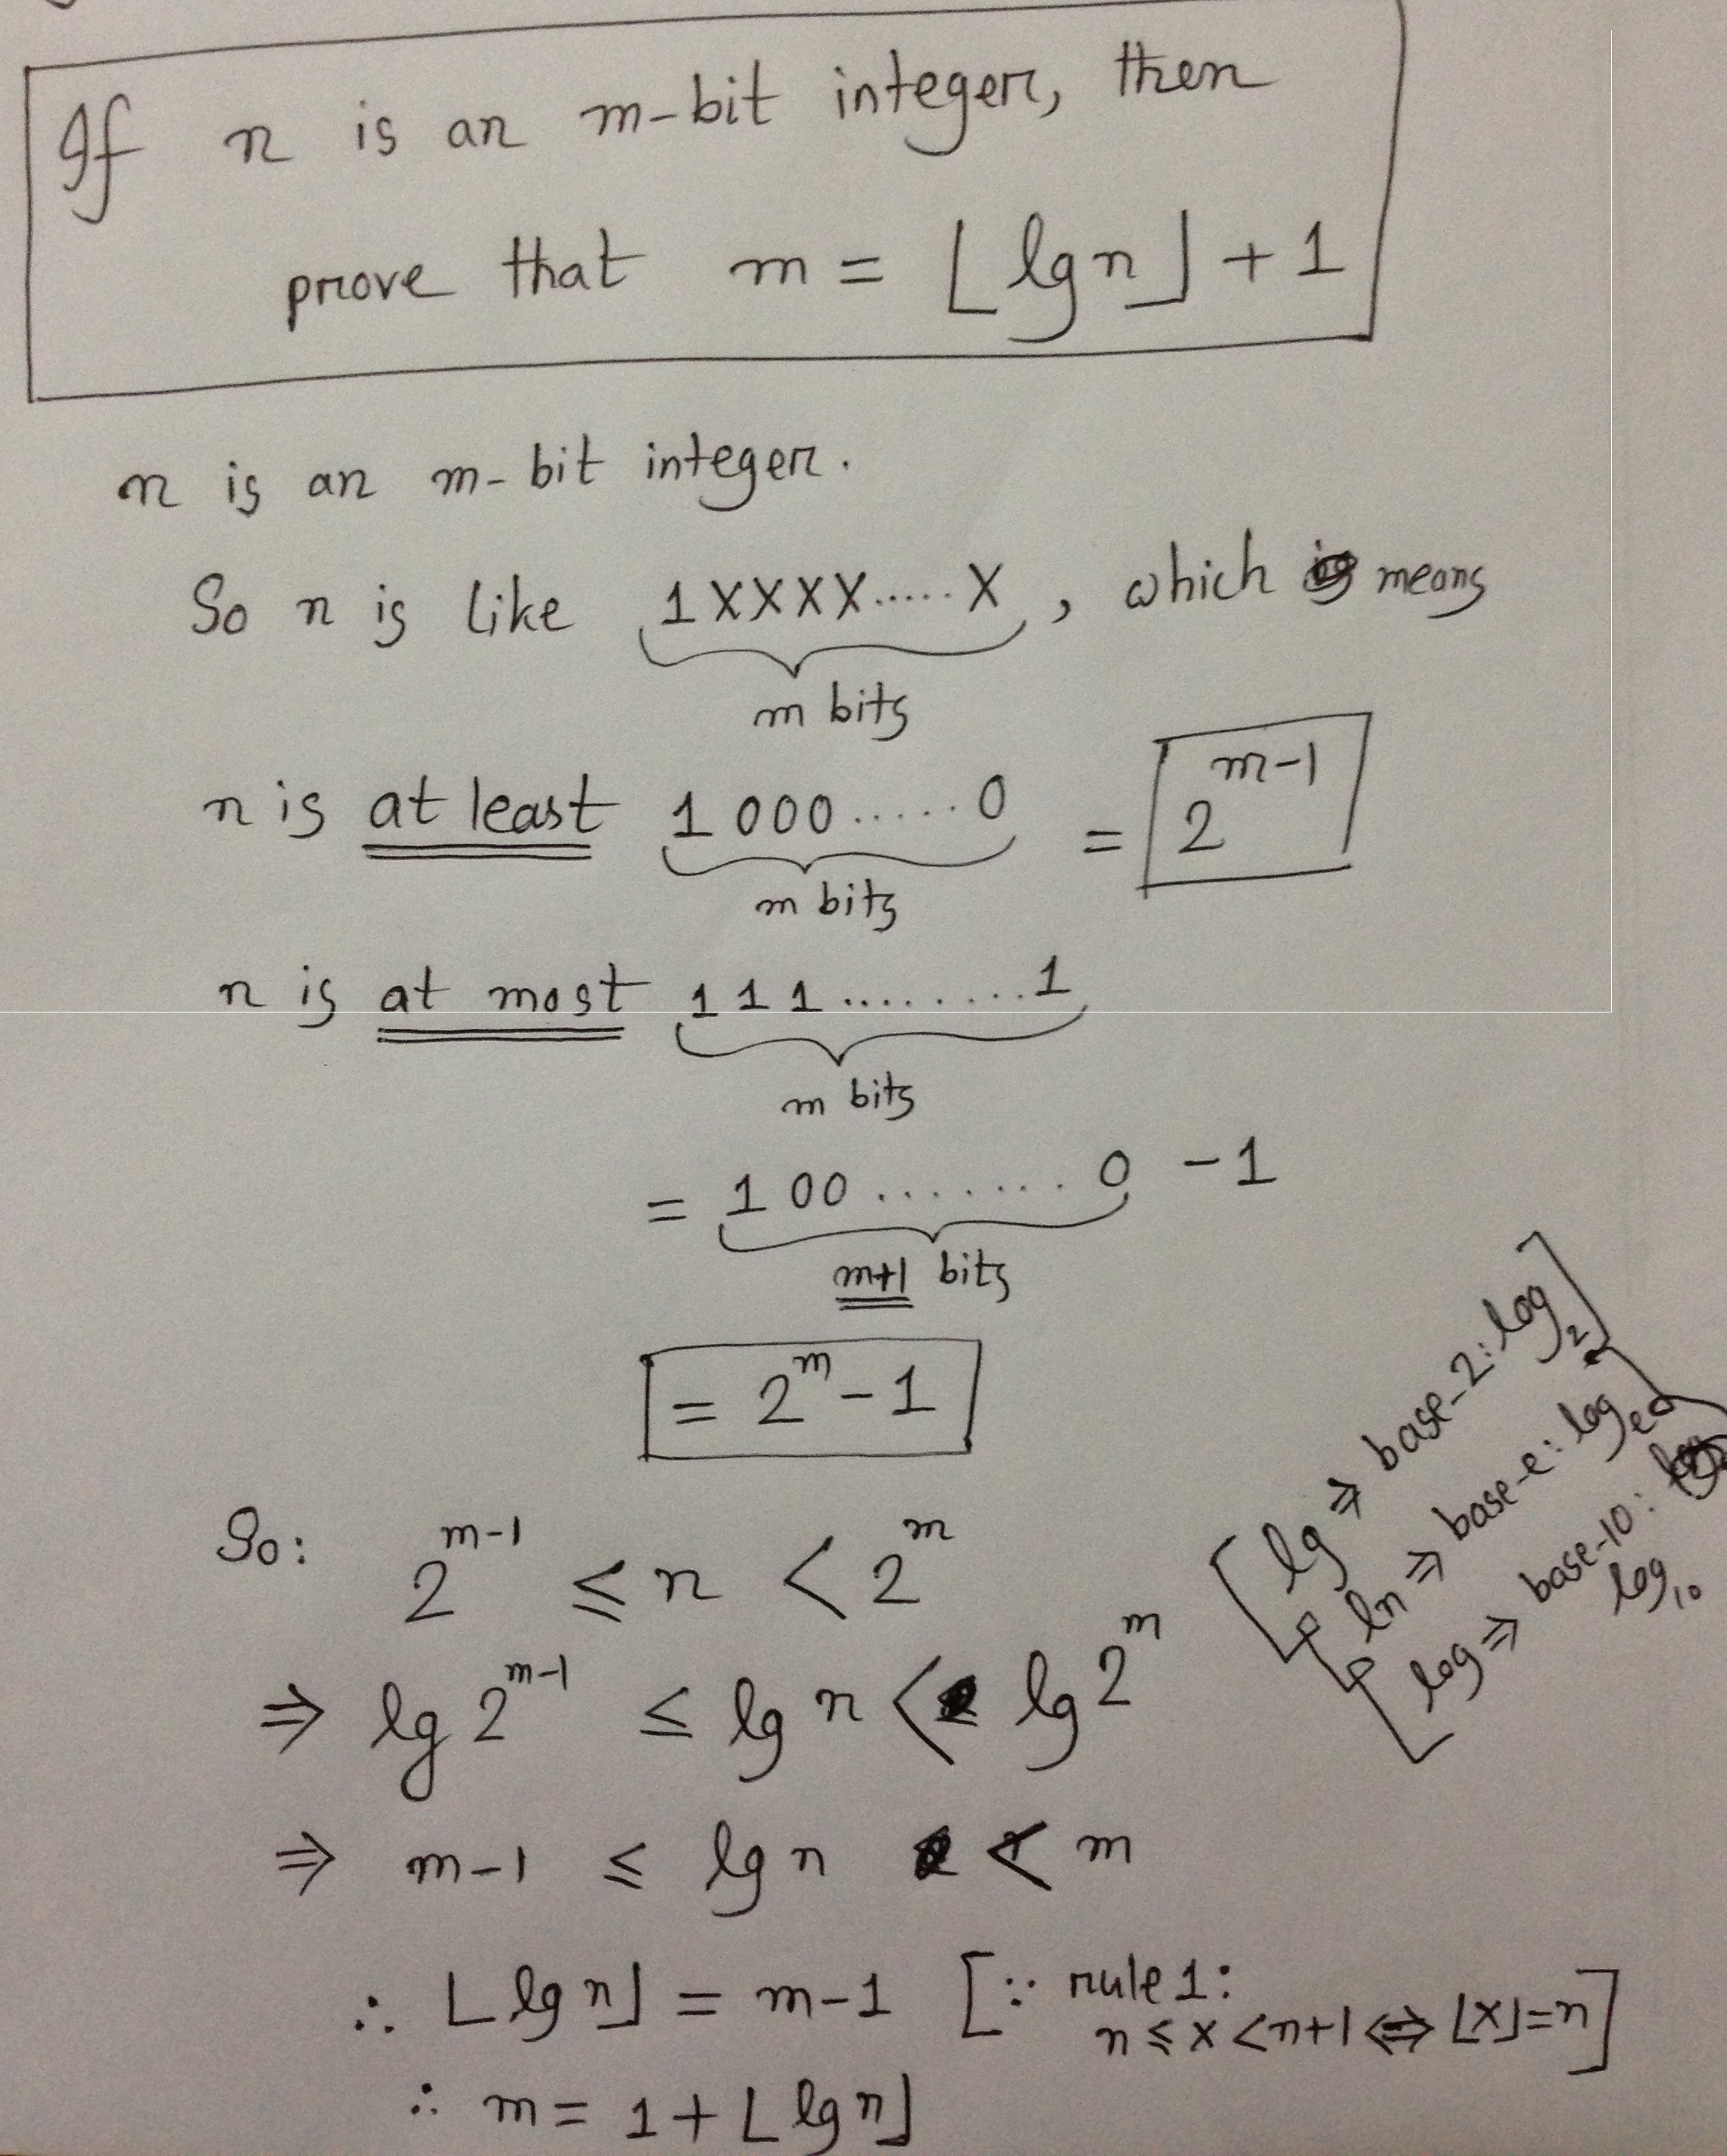 If n is an m-bit integer, then
prove that m = ⌊lg n⌋ + 1
n is an m-bit integer.
So n is like 1XXXX.....X, which means
m bits
n is at least 1000.....0 = 2^(m-1)
m bits
n is at most 111.........1
m bits
= 100........0 -1
m+1 bits
= 2^m - 1
So: 2^(m-1) ≤ n < 2^m
⇒ lg 2^(m-1) ≤ lg n < lg 2^m
⇒ m-1 ≤ lg n < m
∴ ⌊lg n⌋ = m-1 [∵ rule 1:
n ≤ x < n+1 ⇔ ⌊x⌋ = n]
∴ m = 1 + ⌊lg n⌋
[lg ⇒ base-2: log₂]
ln ⇒ base-e: logₑ
log ⇒ base-10:
log₁₀